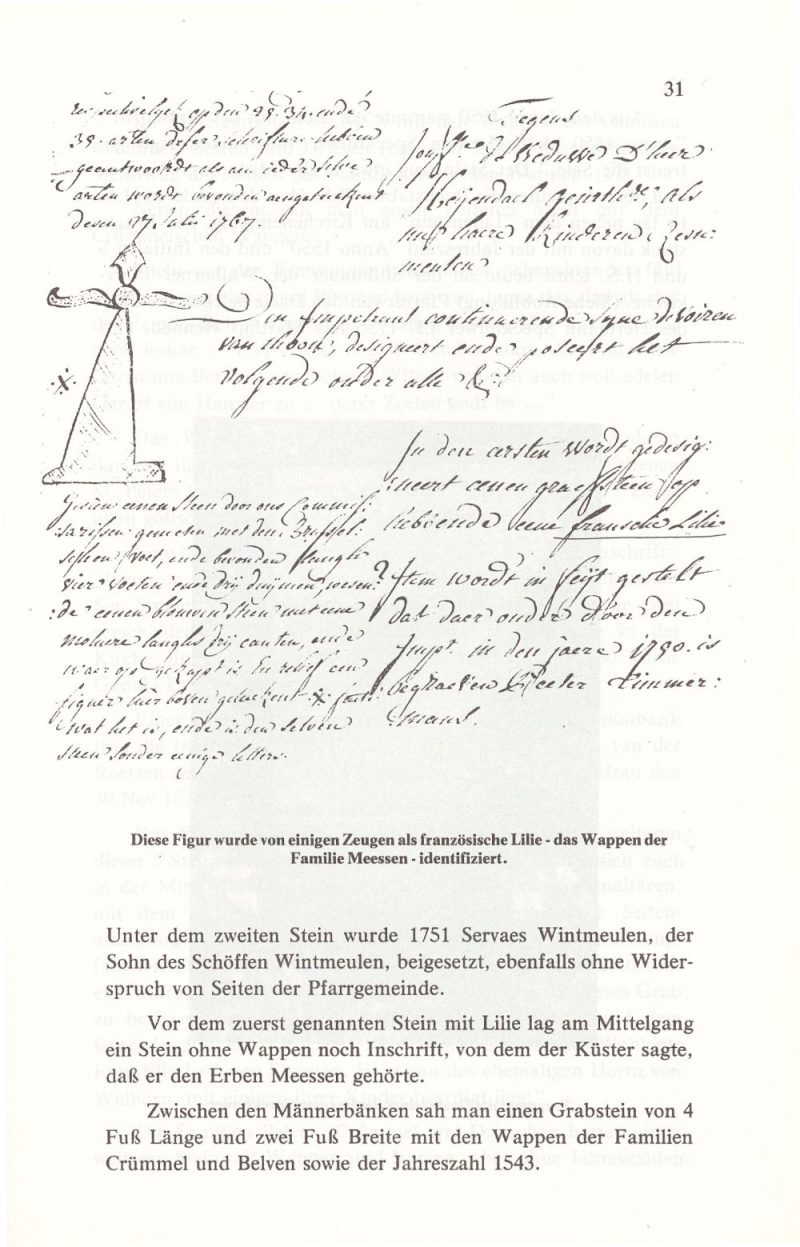 31
op den 29. 34. ende
39. arten deser schrifture hebben
geantwoordt als aen ieder selve
arten wordt bevonden aengeteekent
desen 27 Julii 1767.
Tegens
Jouffe. de Weduwe D'heer
Heijendael geinthde, als
met haere Kinderen
menten
Den Impetrant continuerende syne devoiren
van thoon, designeert ende poseert het
volgende onder alle &a:
·x·
In den eersten wordt gedesig:
neert eenen graefsteen op
hebbende eene fransche Lilie
Item wordt in feijt gestelt
dat daer onder door den
Impt. in den jaere 1750. is
begraeven Peeter Timmer:
mans.
Gesien eenen steen door ons Commis:
sarissen gemeten met den Brussel:
schen voet, ende bevonden langh
vier voeten ende drij duijmen, wesen:
:de eenen blouwen steen met eene
langhs drij canten, ende
waer op gekapt is en relief een
figuer hier boven geteekent ·x·
wat het is, ende is den selven
steen sonder eenige letters.
Diese Figur wurde von einigen Zeugen als französische Lilie - das Wappen der
Familie Meessen - identifiziert.
Unter dem zweiten Stein wurde 1751 Servaes Wintmeulen, der
Sohn des Schöffen Wintmeulen, beigesetzt, ebenfalls ohne Wider-
spruch von Seiten der Pfarrgemeinde.
Vor dem zuerst genannten Stein mit Lilie lag am Mittelgang
ein Stein ohne Wappen noch Inschrift, von dem der Küster sagte,
daß er den Erben Meessen gehörte.
Zwischen den Männerbänken sah man einen Grabstein von 4
Fuß Länge und zwei Fuß Breite mit den Wappen der Familien
Crümmel und Belven sowie der Jahreszahl 1543.